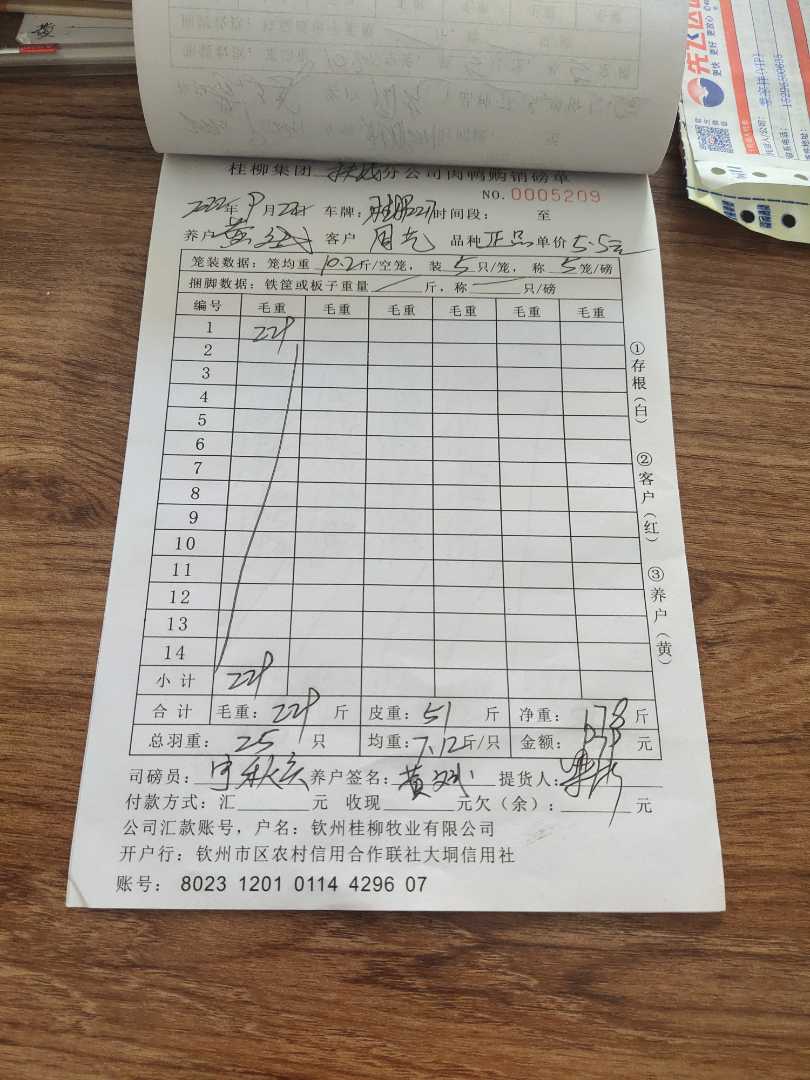 先飞达
更快 更好 更放心
桂柳集团 分公司肉鸭购销磅单
NO. 0005209
2022年9月 日 车牌: 时间段: 至
养户 黄 客户 周 品种 正品 单价 5.5元
笼装数据: 笼均重 10.2 斤/空笼, 装 5 只/笼, 称 5 笼/磅
捆脚数据: 铁筐或板子重量 — 斤, 称 — 只/磅
编号 毛重 毛重 毛重 毛重 毛重 毛重
1 229
2
3
4
5
6
7
8
9
10
11
12
13
14
小计 229
合计 毛重: 229 斤 皮重: 51 斤 净重: 178 斤
总羽重: 25 只 均重: 7.12 斤/只 金额: 979 元
司磅员: 养户签名: 黄 提货人:
付款方式: 汇 元 收现 元欠(余): 元
公司汇款账号, 户名: 钦州桂柳牧业有限公司
开户行: 钦州市区农村信用合作联社大垌信用社
账号: 8023 1201 0114 4296 07
①存根(白)
②客户(红)
③养户(黄)